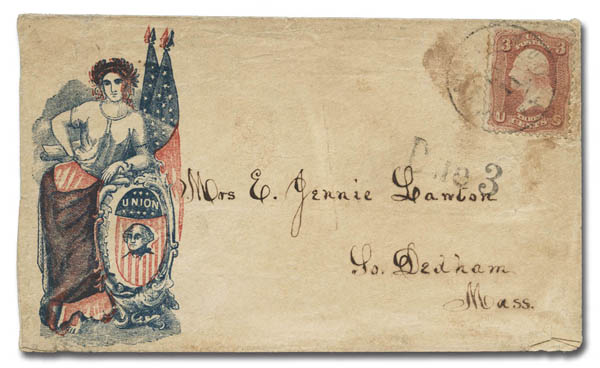 3 3
U CENTS S
Due 3
UNION
Mrs E. Jennie Lawton
So. Dedham
Mass.